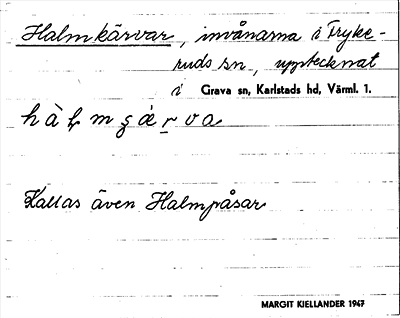 Halmkärvar, invånarna i Fryke-
ruds sn, upptecknat
i Grava sn, Karlstads hd, Värml. 1.
Kallas även Halmpåsar
MARGIT KIELLANDER 1947